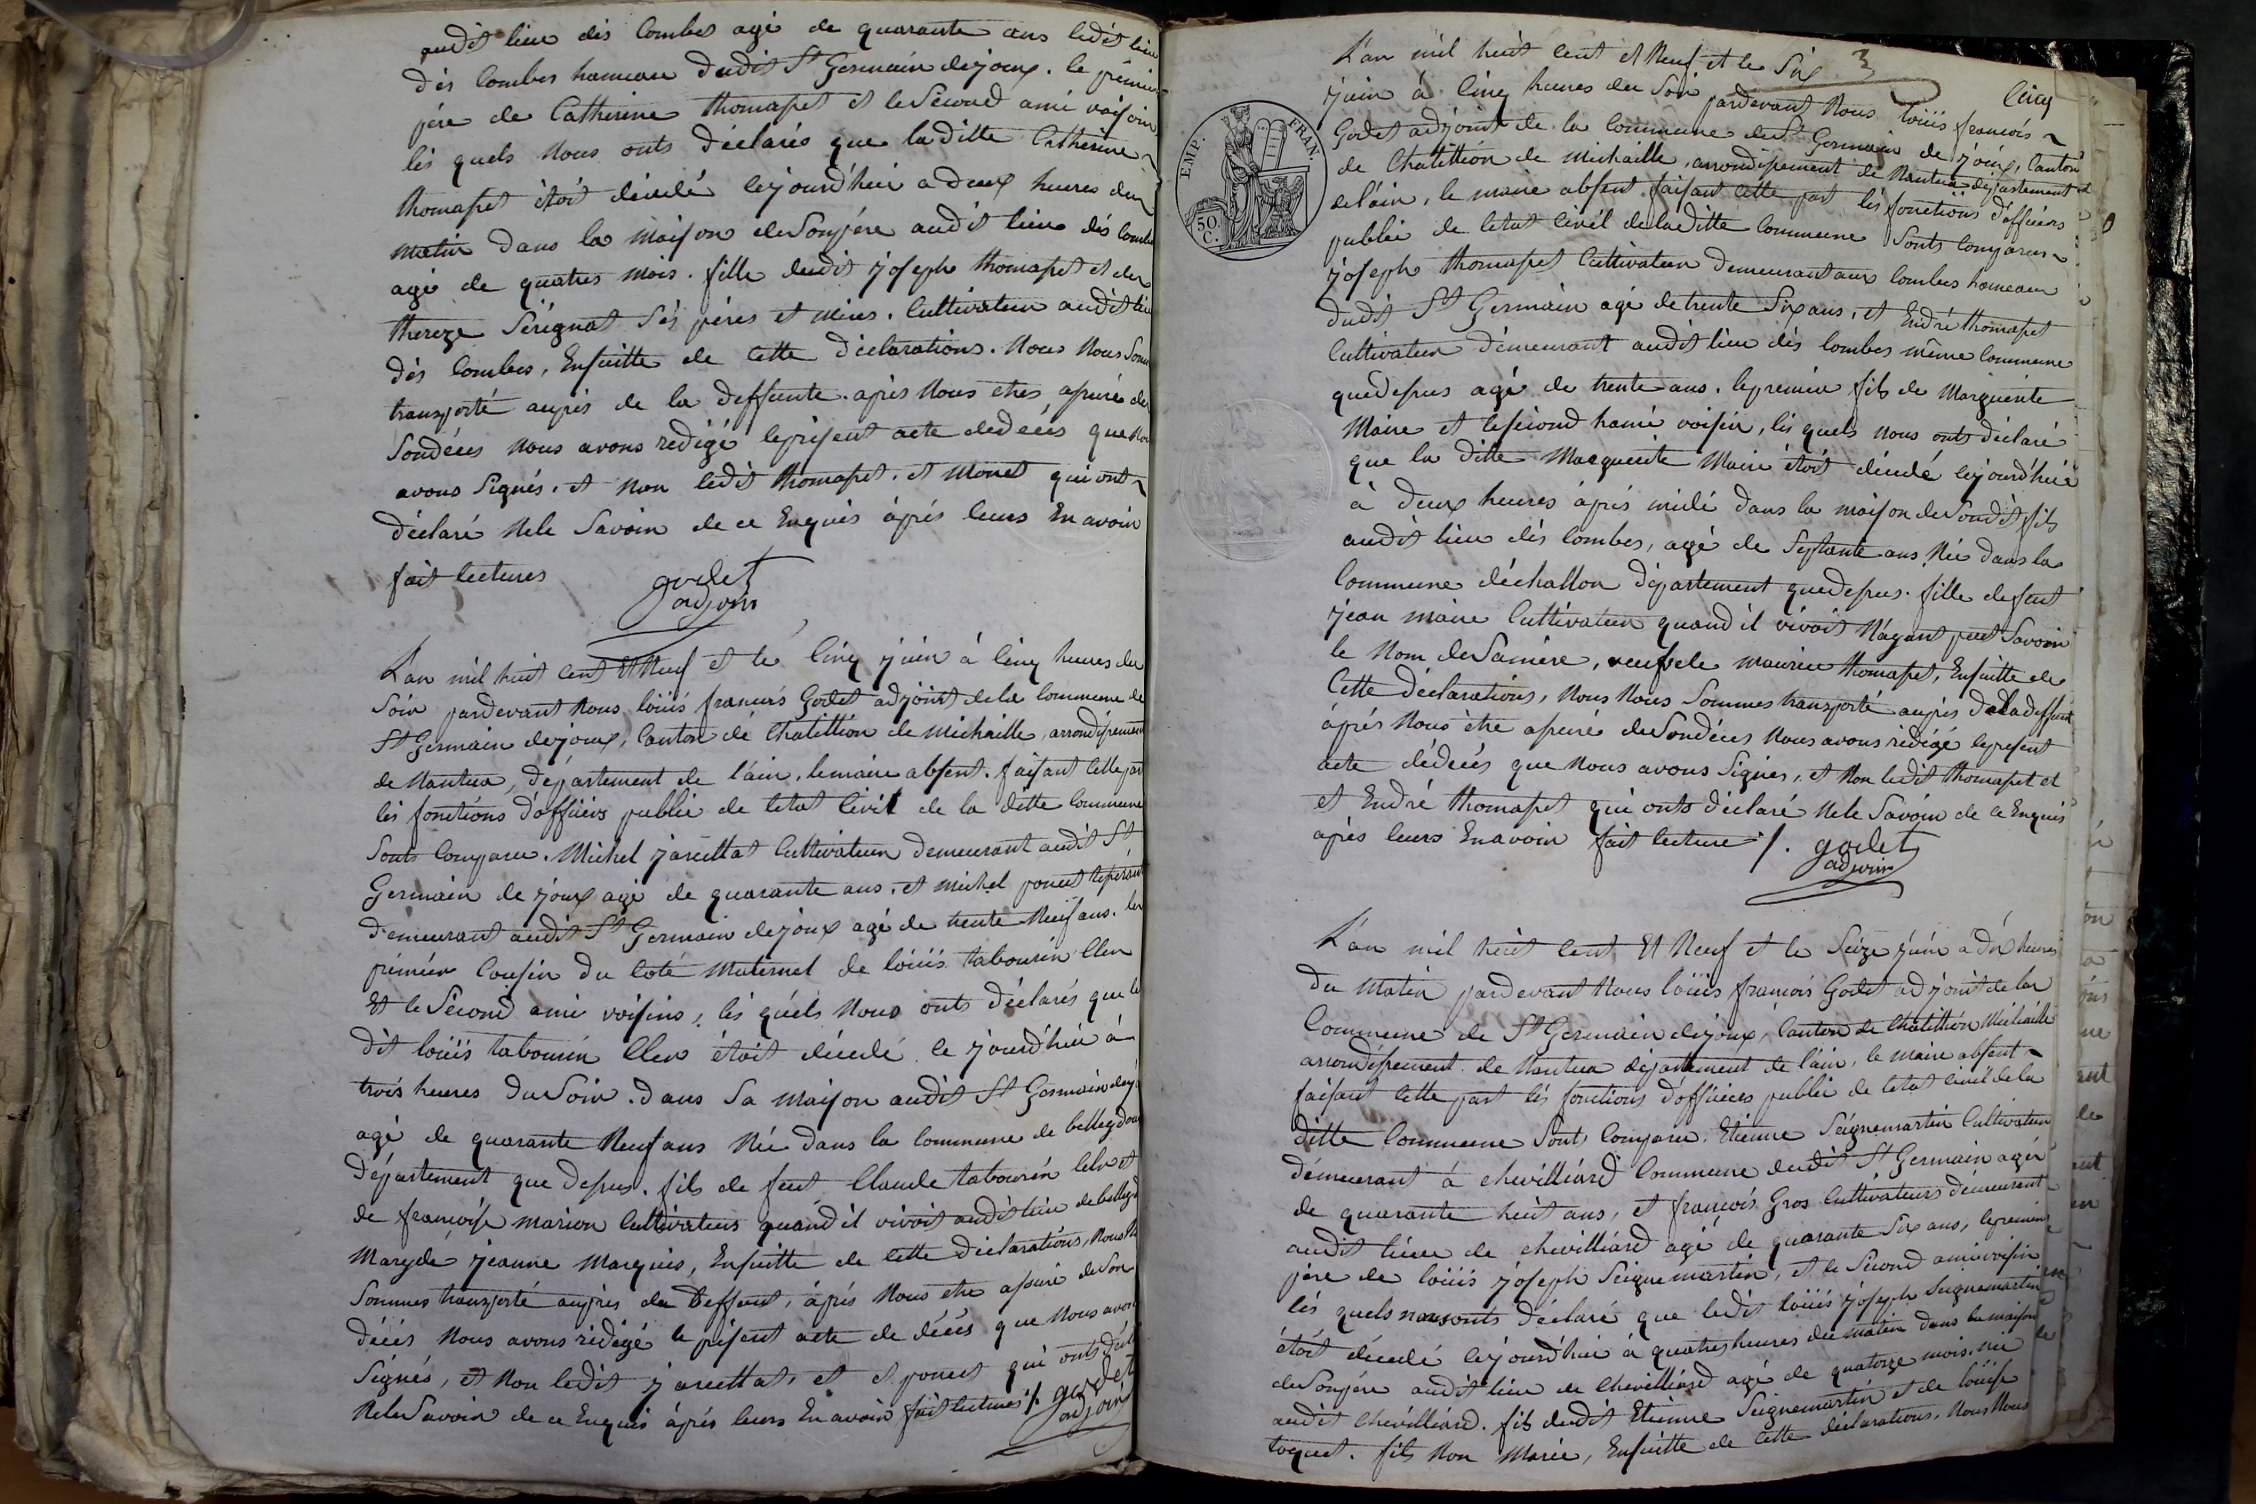 audit lieu dés Combes agé de quarante ans ledit lieu
dés Combes hameau dudit St Germain dejoux. le premier
pére de Catherine thomasset et le Second ami voisin
lés quels Nous onts déclarés que laditte Catherine
thomasset étoit décédé cejourd'hui a deux heures du
matin dans la Maison de Sonpére audit lieu dés Combes
agé de quatres mois. fille dudit joseph thomasset et de
thereze Sérignat Sés péres et méres. Cultivateur audit lieu
dés Combes, Ensuitte de Cette déclarations. Nous Nous Sommes
transporté auprés de la deffunte. aprés Nous etres assuré de
Sondécés Nous avons redigé leprésent acte dedécés que Nous
avons Signés. et Non ledit thomasset. et Monet qui ont
déclaré Nele Savoir de ce Enquis aprés leurs En avoir
fait lectures
godet
adjoin
L'an mil huit Cent Et Neuf et le Cinq juin à Cinq heures du
Soir pardevant Nous loüis francois Godet adjoint dela Commune de
St Germain dejoux, Canton de Chatillion de Michaille, arrondissement
de Nantua, département de l'ain, lemaire absent. faisant Cettepart
lés fonctions d'officiers public de letat Civil de la ditte Commune
Sonts Comparu. Michel jarcettat Cultivateur demeurant audit St
Germain de joux agé de quarante ans. et michel poncet
demeurant audit St Germain dejoux agé de trente Neuf ans. le
prémier Cousin du Coté Maternel de loüis tabourin Cler
Et le Second ami voisins, lés quéls Nous onts déclarés que le
dit loüis tabourin Cler étoit décédé ce jourd'hui à
trois heures du Soir. dans Sa Maison audit St Germain dejoux
agé de quarante Neuf ans Née dans la Commune de bellegdoux
département que dessus. fils de feut Claude tabourin Celr et
de francoise marion Cultivateurs quand il vivoit audit lieu de bellegd
Maryde jeanne Marquis, Ensuitte de Cette déclarations, Nous N
Sommes transporté auprés du Deffunt, aprés Nous etre assuré de Son
décés Nous avons rédigé le présent acte de décés que Nous avons
Signés, et Non ledit jarcettat, et et ponect qui onts décl
Nele Savoir de ce Enquis aprés leurs En avoir fait lectures /. godet
adjoin
3
L'an mil huit Cent et Neuf et le Six
Cinq
juin à Cinq heures du Soir pardevant Nous loüis francois
Godet adjoint de la Commune de St Germain de joux, Canton
de Chatillion de Michaille, arrondissement de Nantua département
de l'ain, le maire absent, faisant Cette part lés fonctions d'officiers
public de letat Civil de laditte Commune Sonts Comparus
joseph thomasset Cultivateur demeurant aux Combes hameau
dudit St Germain agé de trente Six ans, et Endré thomasset
Cultivateur démeurant audit lieu dés Combes même Commune
quedessus agé de trente ans. lepremier fils de Marguerite
Maire et lesecond hami voisin, lés quels nous onts déclaré
que la ditte Marguerite Maire étoit décédé cejourd'hui
à deux heures aprés midi dans la maison de Sondit fils
audit lieu dés Combes, agé de Septante ans Née dans la
Commune déchallon département quedessus. fille defeut
jean maire Cultivateur quand il vivoit N'ayant peut Savoir
le Nom de Samére, veufsele Maurice thomasset, Ensuitte de
Cette déclarations, Nous Nous Sommes transporté auprés deladeffunte
áprés Nous être assuré de Sondécés Nous avons rédigé leprésent
acte dédécés que Nous avons Signés, et Non ledit thomasset et
et Endré thomasset qui onts déclaré Nele Savoir de ce Enquis
aprés leurs Enavoir fait lecture /. godet
adjoin
L'an mil huit Cent Et Neuf et le Seize juin à Dix heures
du Matin pardevant Nous loüis francois Godet adjoint de la
Commune de St Germain dejoux, Canton de Chatillion Michaille
arrondissement de Nantua département de l'ain, le maire absent
faisant Cette part lés fonctions d'officiers public de letat Civil de la
ditte Commune Sonts Comparu. Etienne Seignemartin Cultivateur
démeurant à chevilliard Commune dudit St Germain agér
de quarante huit ans, et francois Gros Cultivateurs démeurent
audit lieu de chevilliard agé de quarante Six ans, lepremier
pére de loüis joseph Seignemartin, et le Second ami voisin
lés quels nousonts déclaré que ledit loüis joseph Seignemartin
étoit décédé cejourd'hui à quatres heures du matin dans lamaison
de Sonpére audit lieu de Chevilliard agé de quatorze mois. née
audit chevilliard. fils dudit Etienne Seignemartin et de loüise
toquet. fils Non Marié, Ensuitte de Cette déclarations, Nous Nous
EMP. FRAN.
50.
C.